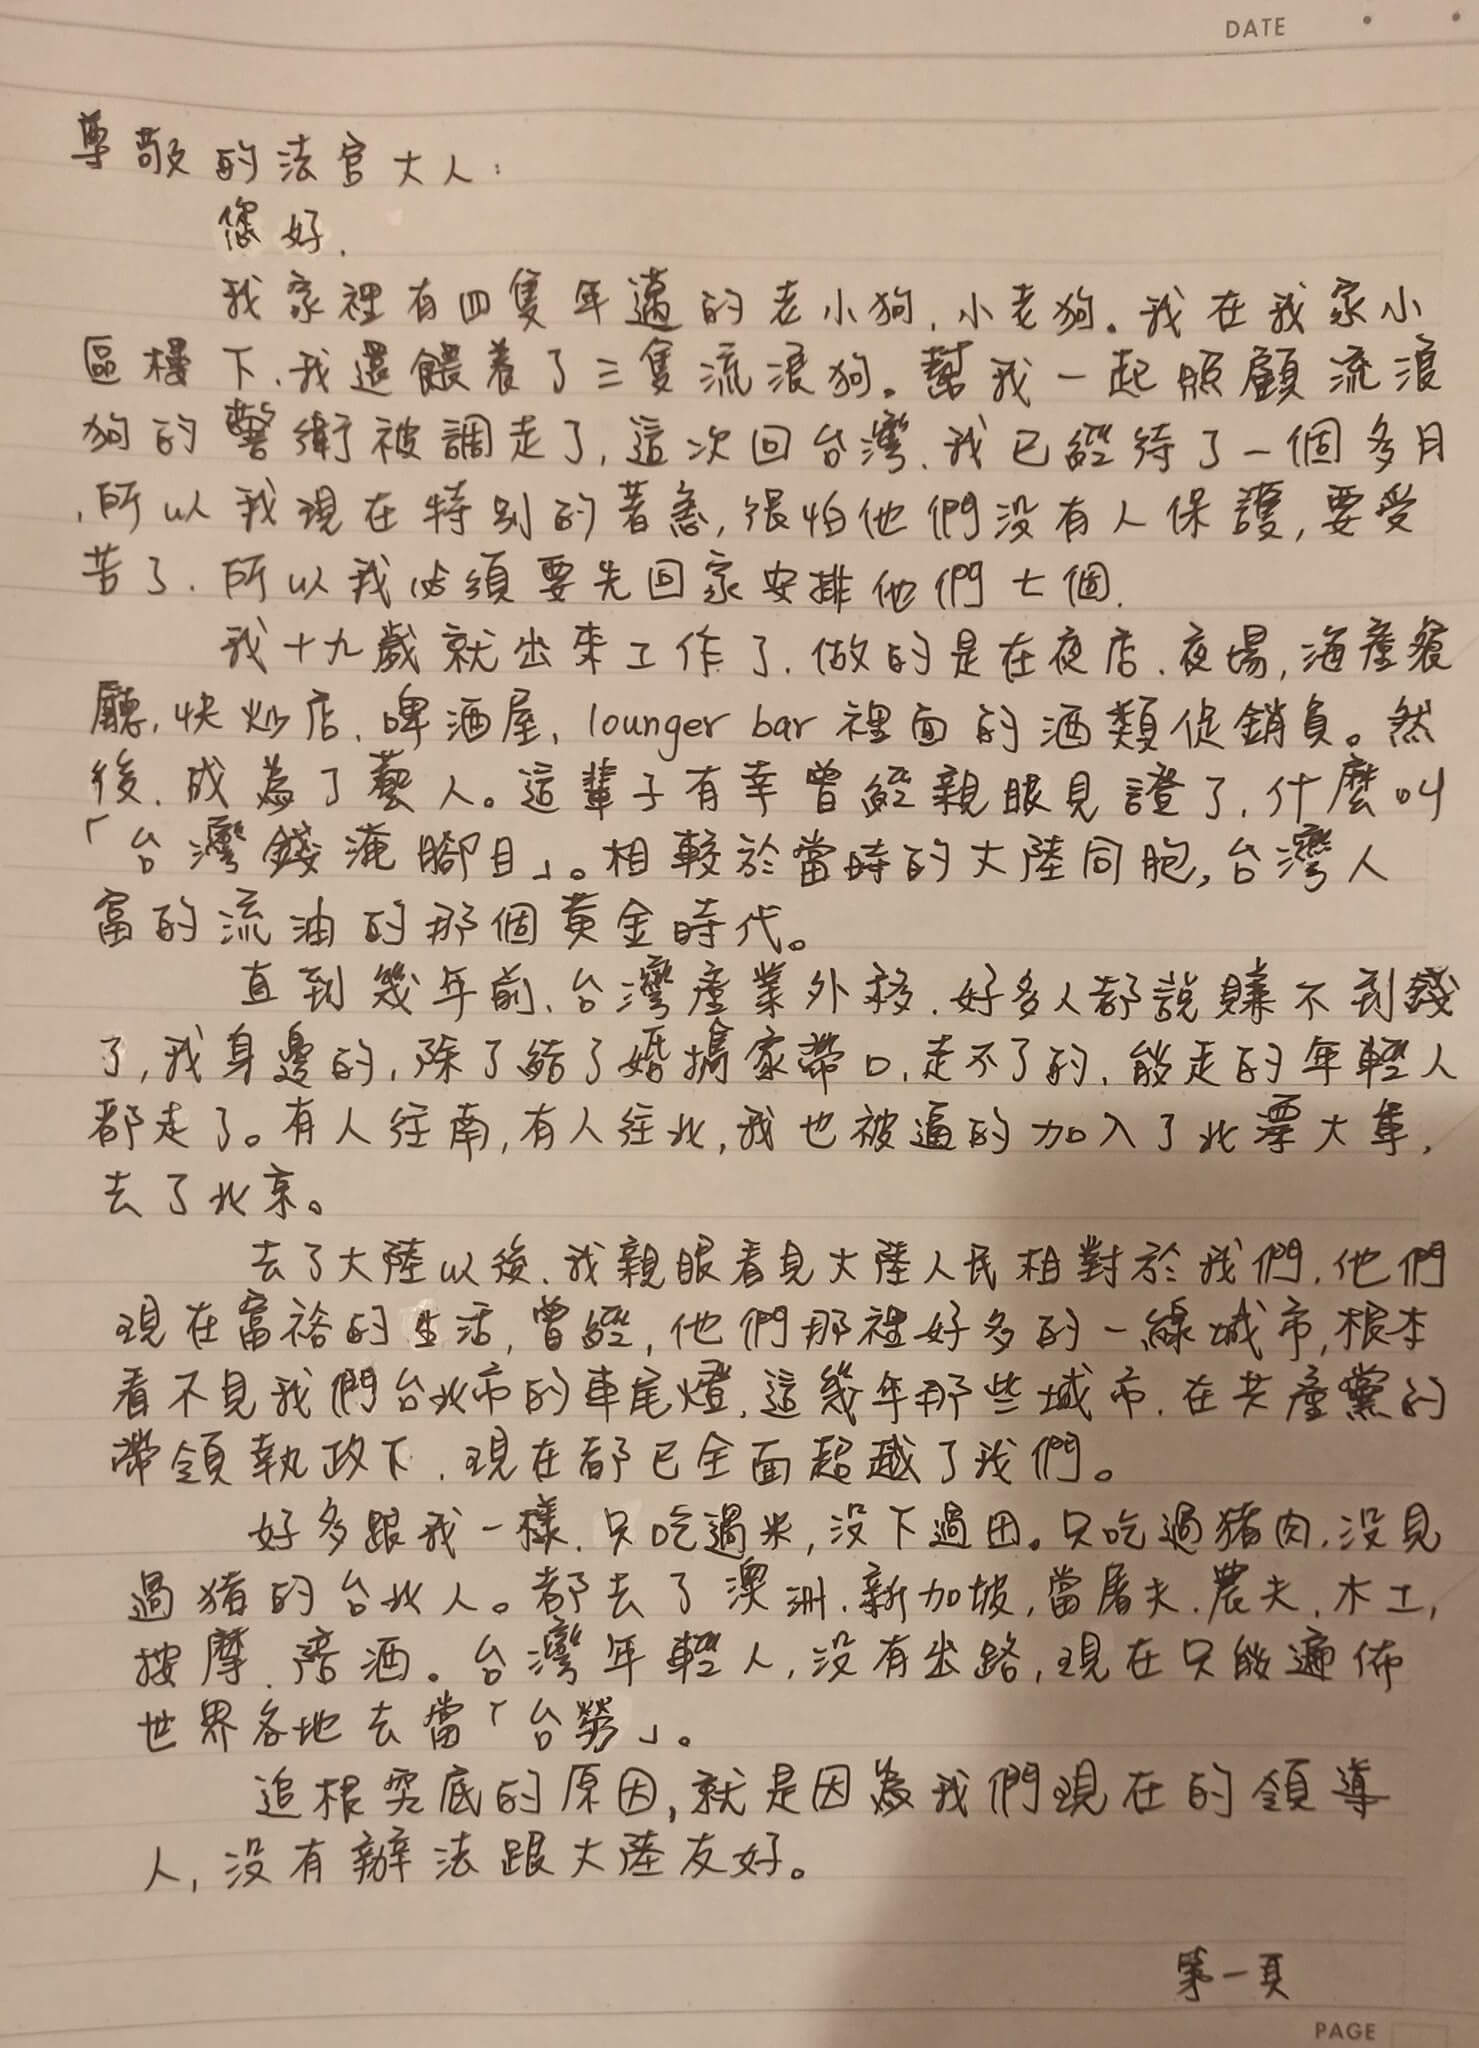 DATE
尊敬的法官大人:
您好.
我家裡有四隻年邁的老小狗,小老狗。我在我家小
區樓下,我還餵養了三隻流浪狗。幫我一起照顧流浪
狗的警衛被調走了,這次回台灣,我已經待了一個多月
,所以我現在特別的著急,很怕他們沒有人保護,要受
苦了.所以我必須要先回家安排他們七個.
我十九歲就出來工作了.做的是在夜店.夜場,海產餐
廳,快炒店.啤酒屋,lounger bar裡面的酒類促銷員。然
後.成為了藝人。這輩子有幸曾經親眼見證了,什麼叫
「台灣錢淹腳目」。相較於當時的大陸同胞,台灣人
富的流油的那個黃金時代。
直到幾年前,台灣產業外移.好多人都說賺不到錢
了,我身邊的,除了結了婚攜家帶口,走不了的,能走的年輕人
都走了。有人往南,有人往北,我也被逼的加入了北漂大軍,
去了北京。
去了大陸以後.我親眼看見大陸人民相對於我們.他們
現在富裕的生活,曾經,他們那裡好多的一線城市,根本
看不見我們台北市的車尾燈.這幾年那些城市.在共產黨的
帶領執政下.現在都已全面超越了我們。
好多跟我一樣.只吃過米,沒下過田。只吃過豬肉,沒見
過豬的台北人。都去了澳洲.新加坡,當屠夫.農夫,木工,
按摩.陪酒。台灣年輕人,沒有出路,現在只能遍佈
世界各地去當「台勞」。
追根究底的原因,就是因為我們現在的領導
人,沒有辦法跟大陸友好。
第一頁
PAGE